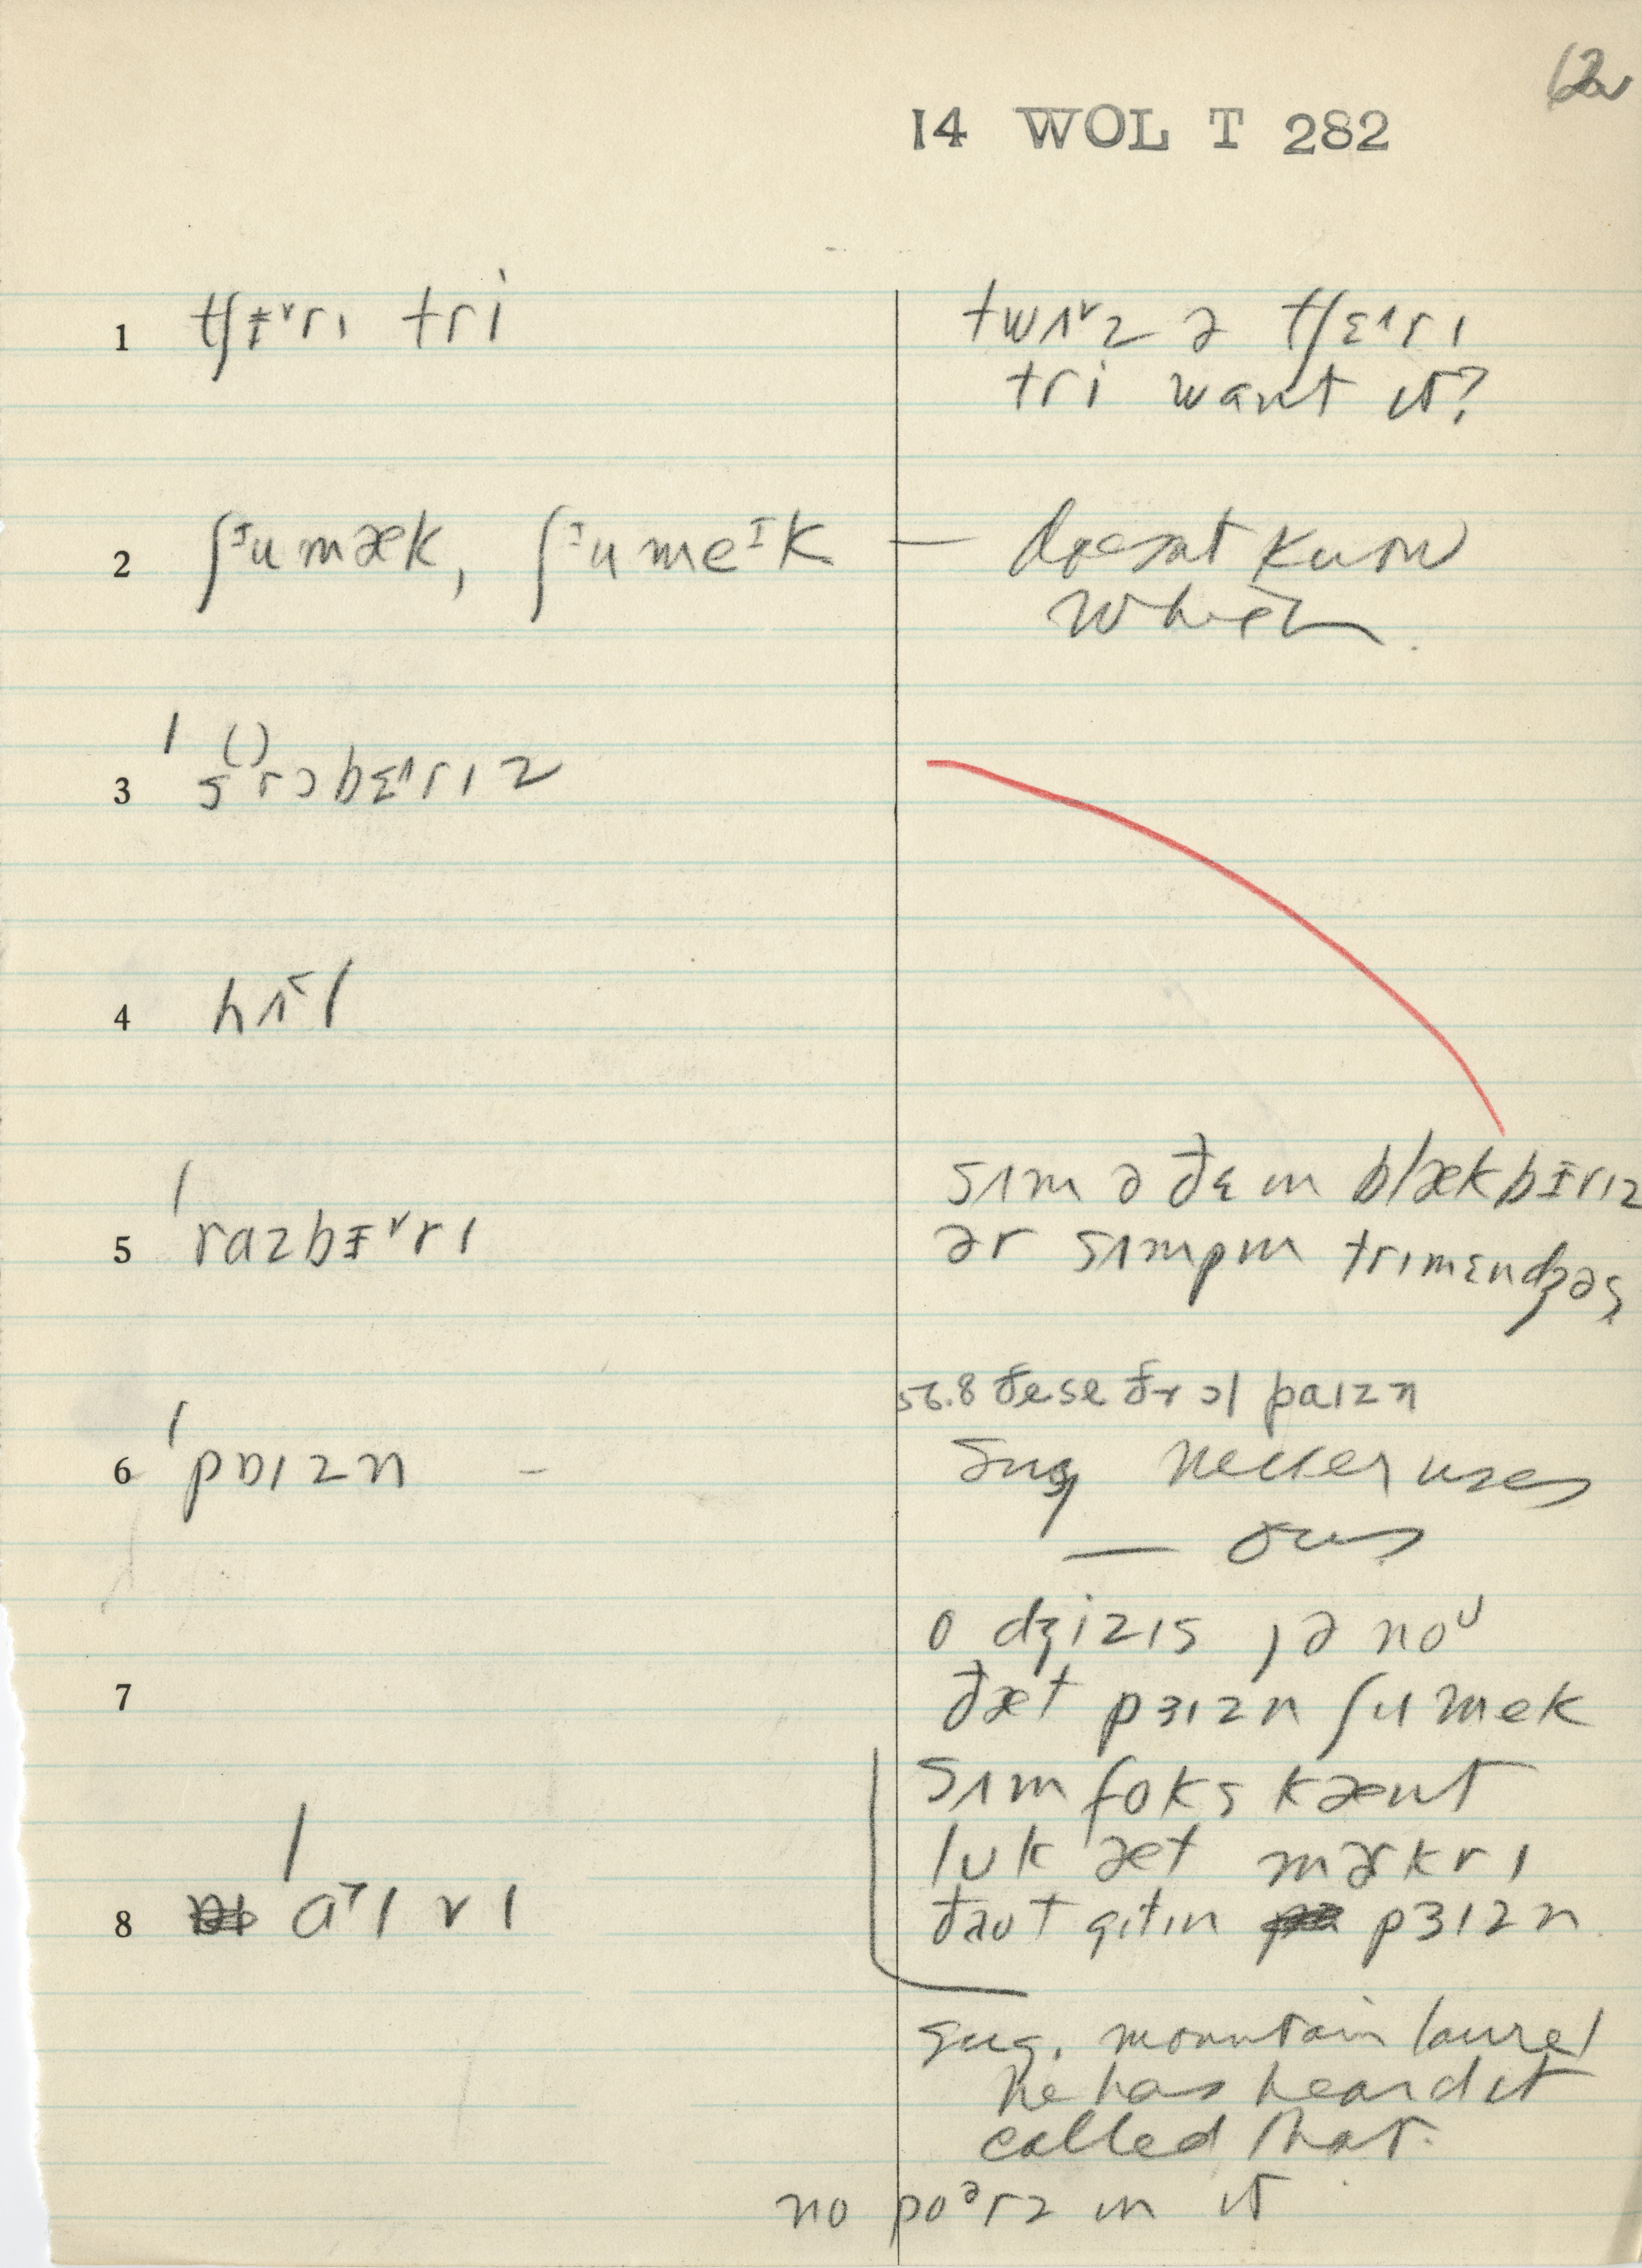 62
14 WOL T 282
1 tʃɨ˅rɪ tri
twʌ˅z ə tʃɛ˄rɪ
tri want it?
2 ʃᶦumæk, ʃᶦumeᶦk — doesnt know
which.
3 ˈs()rɔbɛ˄rɪz
4 hɪ˂l
5 ˈrazbɨ˅rɪ
sʌm ə ðɛm blækbɨrɪz
ər sʌmpm trɪmɛndʒəs
6 ˈpɒɪzn –
56.8 ðese ðr ɔl paɪzn
Sug never uses
— ous
7
o dʒizɪs jə noᶸ
ðæt pɜɪzn ʃumek
sʌm foks kænt
lʊk æt mɚkrɪ
ðaʊt gɪtɪn pɜɪzn
8 ˈa˂lvɪ
sug. mountain laurel
he has heard it
called that.
no poᵊrz in it